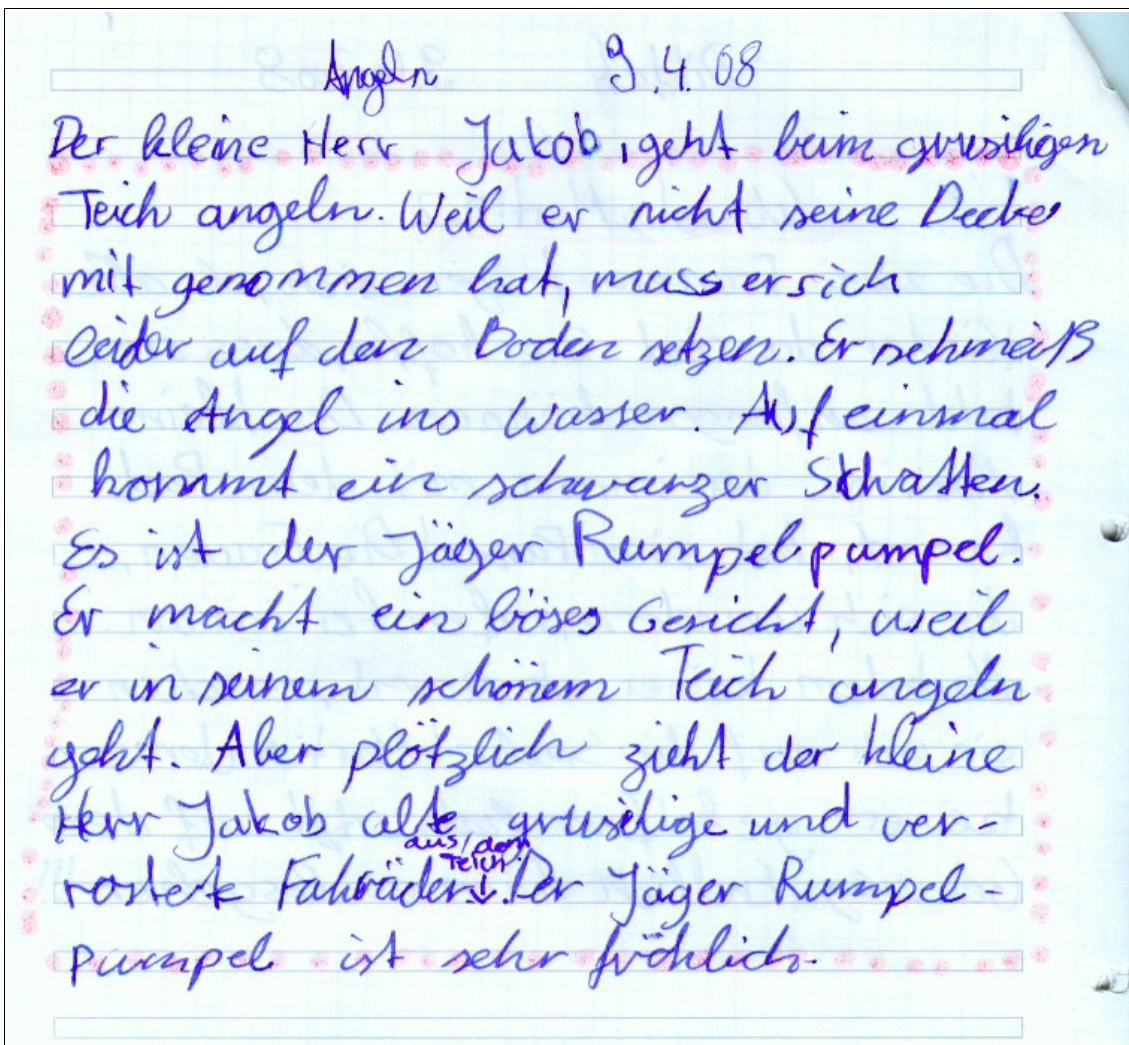 Angeln 9.4.08
Der kleine Herr Jakob, geht beim grusiligen
Teich angeln. Weil er nicht seine Decke
mit genommen hat, muss er sich
leider auf den Boden setzen. Er schmeiß
die Angel ins Wasser. Auf einmal
kommt ein schwarzer Schatten.
Es ist der Jäger Rumpelpumpel.
Er macht ein böses Gesicht, weil
er in seinem schönem Teich angeln
geht. Aber plötzlich zieht der kleine
Herr Jakob alte gruselige und ver-
aus dem
Teich
rostete Fahräder. Der Jäger Rumpel-
pumpel ist sehr fröhlich.